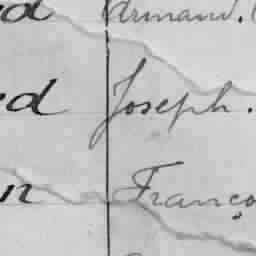 d Armand.
ed Joseph.
n Franço